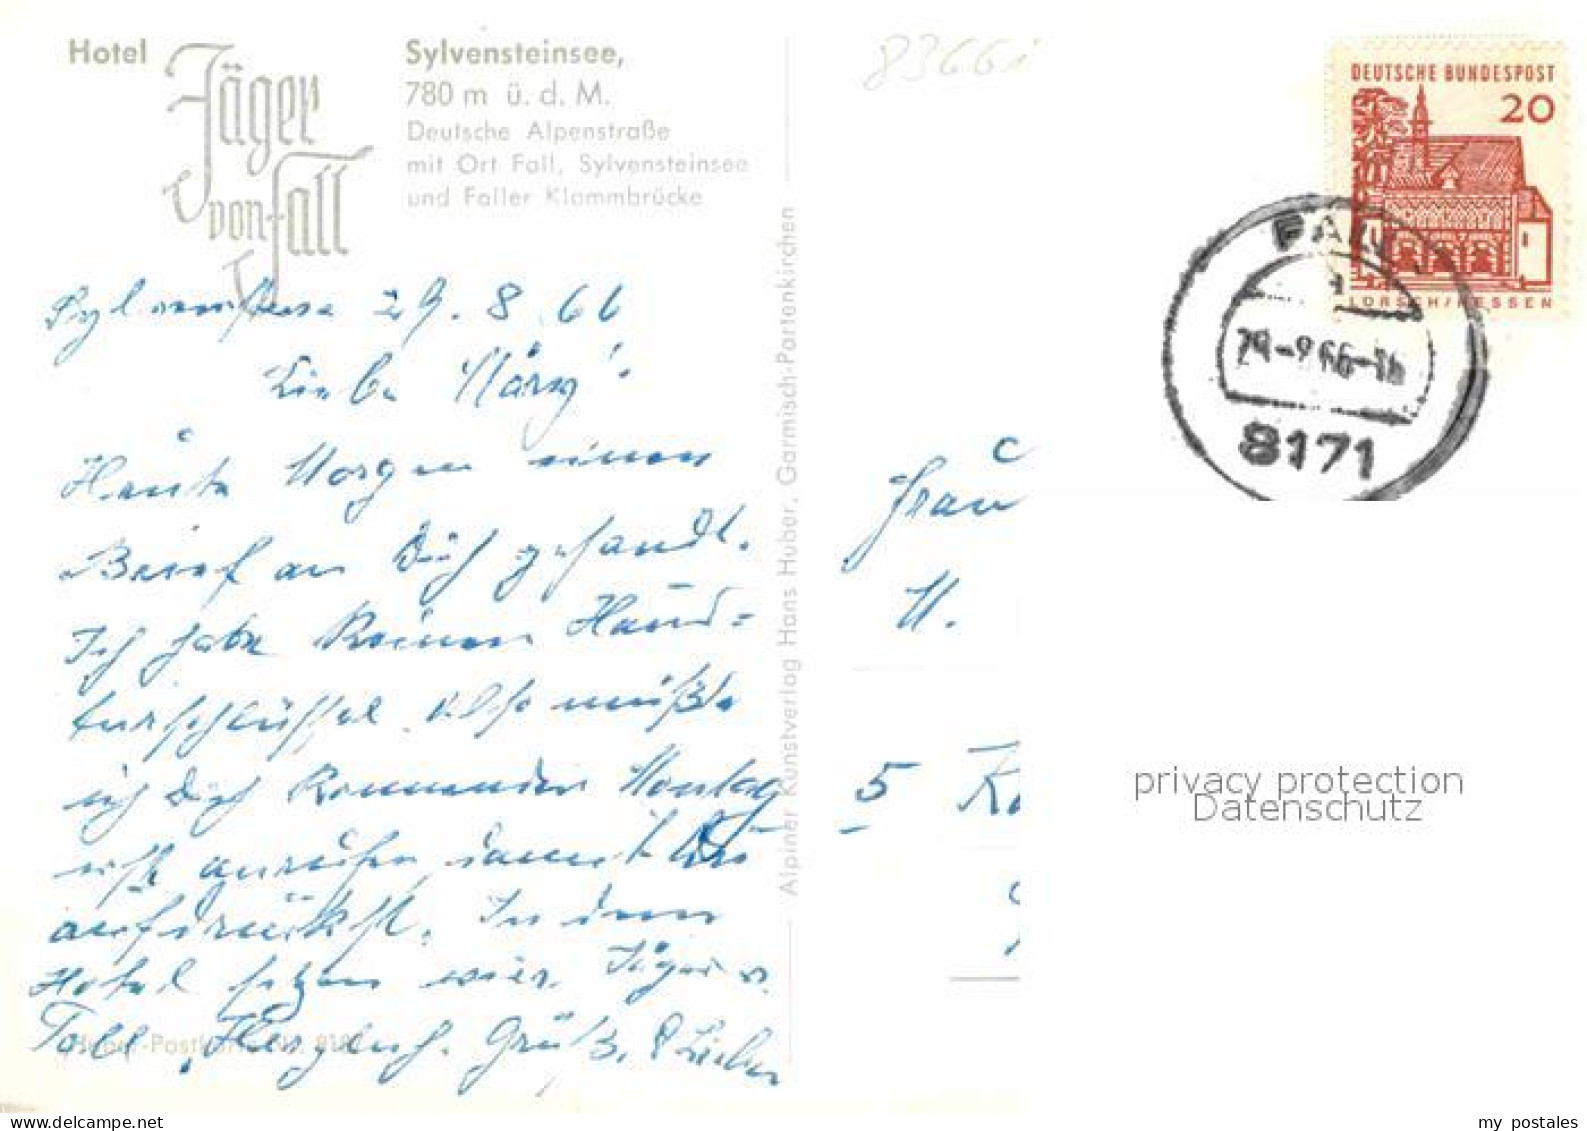 Hotel
Jäger
von Fall
Sylvensteinsee,
780 m ü. d. M.
Deutsche Alpenstraße
mit Ort Fall, Sylvensteinsee
und Faller Klammbrücke
8366i
DEUTSCHE BUNDESPOST
20
LORSCH/HESSEN
FALL
8171
29.8.66
Liebe
Heute Morgen einen
Brief an Dich gesandt.
Ich habe keinen Haus=
turschlüssel. Also müßte
ich Dich kommenden Montag
anrufen damit Du
aufdrückst. In dem
Hotel sitzen wir. Jäger v.
Fall. Herzlich. Grüße
Huber-Postkarte Nr. 818
Alpiner Kunstverlag Hans Huber, Garmisch-Partenkirchen
Frau
M.
5
privacy protection
Datenschutz
my postales